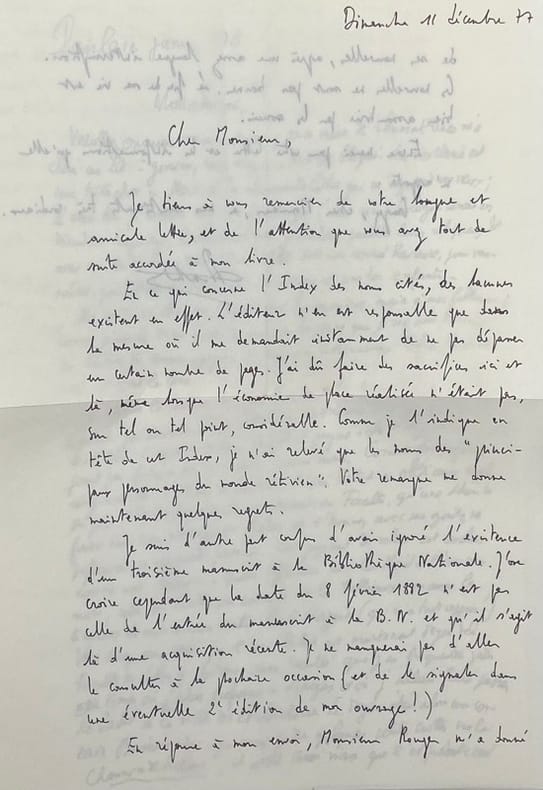 Dimanche 11 décembre 77
Cher Monsieur,
Je tiens à vous remercier de votre longue et
amicale lettre, et de l'attention que vous avez tout de
suite accordée à mon livre.
En ce qui concerne l'Index des noms cités, des lacunes
existent en effet. L'éditeur n'en est responsable que dans
la mesure où il me demandait instamment de ne pas dépasser
un certain nombre de pages. J'ai dû faire des sacrifices ici et
là, même lorsque l'économie de place réalisée n'était pas,
sur tel ou tel point, considérable. Comme je l'indique en
tête de cet Index, je n'ai relevé que les noms des "princi-
paux personnages du monde rétivien". Votre remarque me donne
maintenant quelques regrets.
Je suis d'autre part confus d'avoir ignoré l'existence
d'un troisième manuscrit à la Bibliothèque Nationale. J'ose
croire cependant que la date du 8 février 1892 n'est pas
celle de l'entrée du manuscrit à la B.N. et qu'il s'agit
là d'une acquisition récente. Je ne manquerai pas d'aller
le consulter à la prochaine occasion (et de le signaler dans
une éventuelle 2e édition de mon ouvrage !)
En réponse à mon envoi, Monsieur Rouger m'a donné